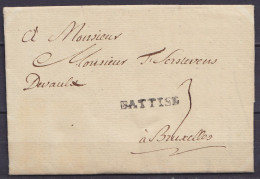 A Monsieur
Monsieur T'Serstevens
Devaulx
3
BATTISE
à Bruxelles